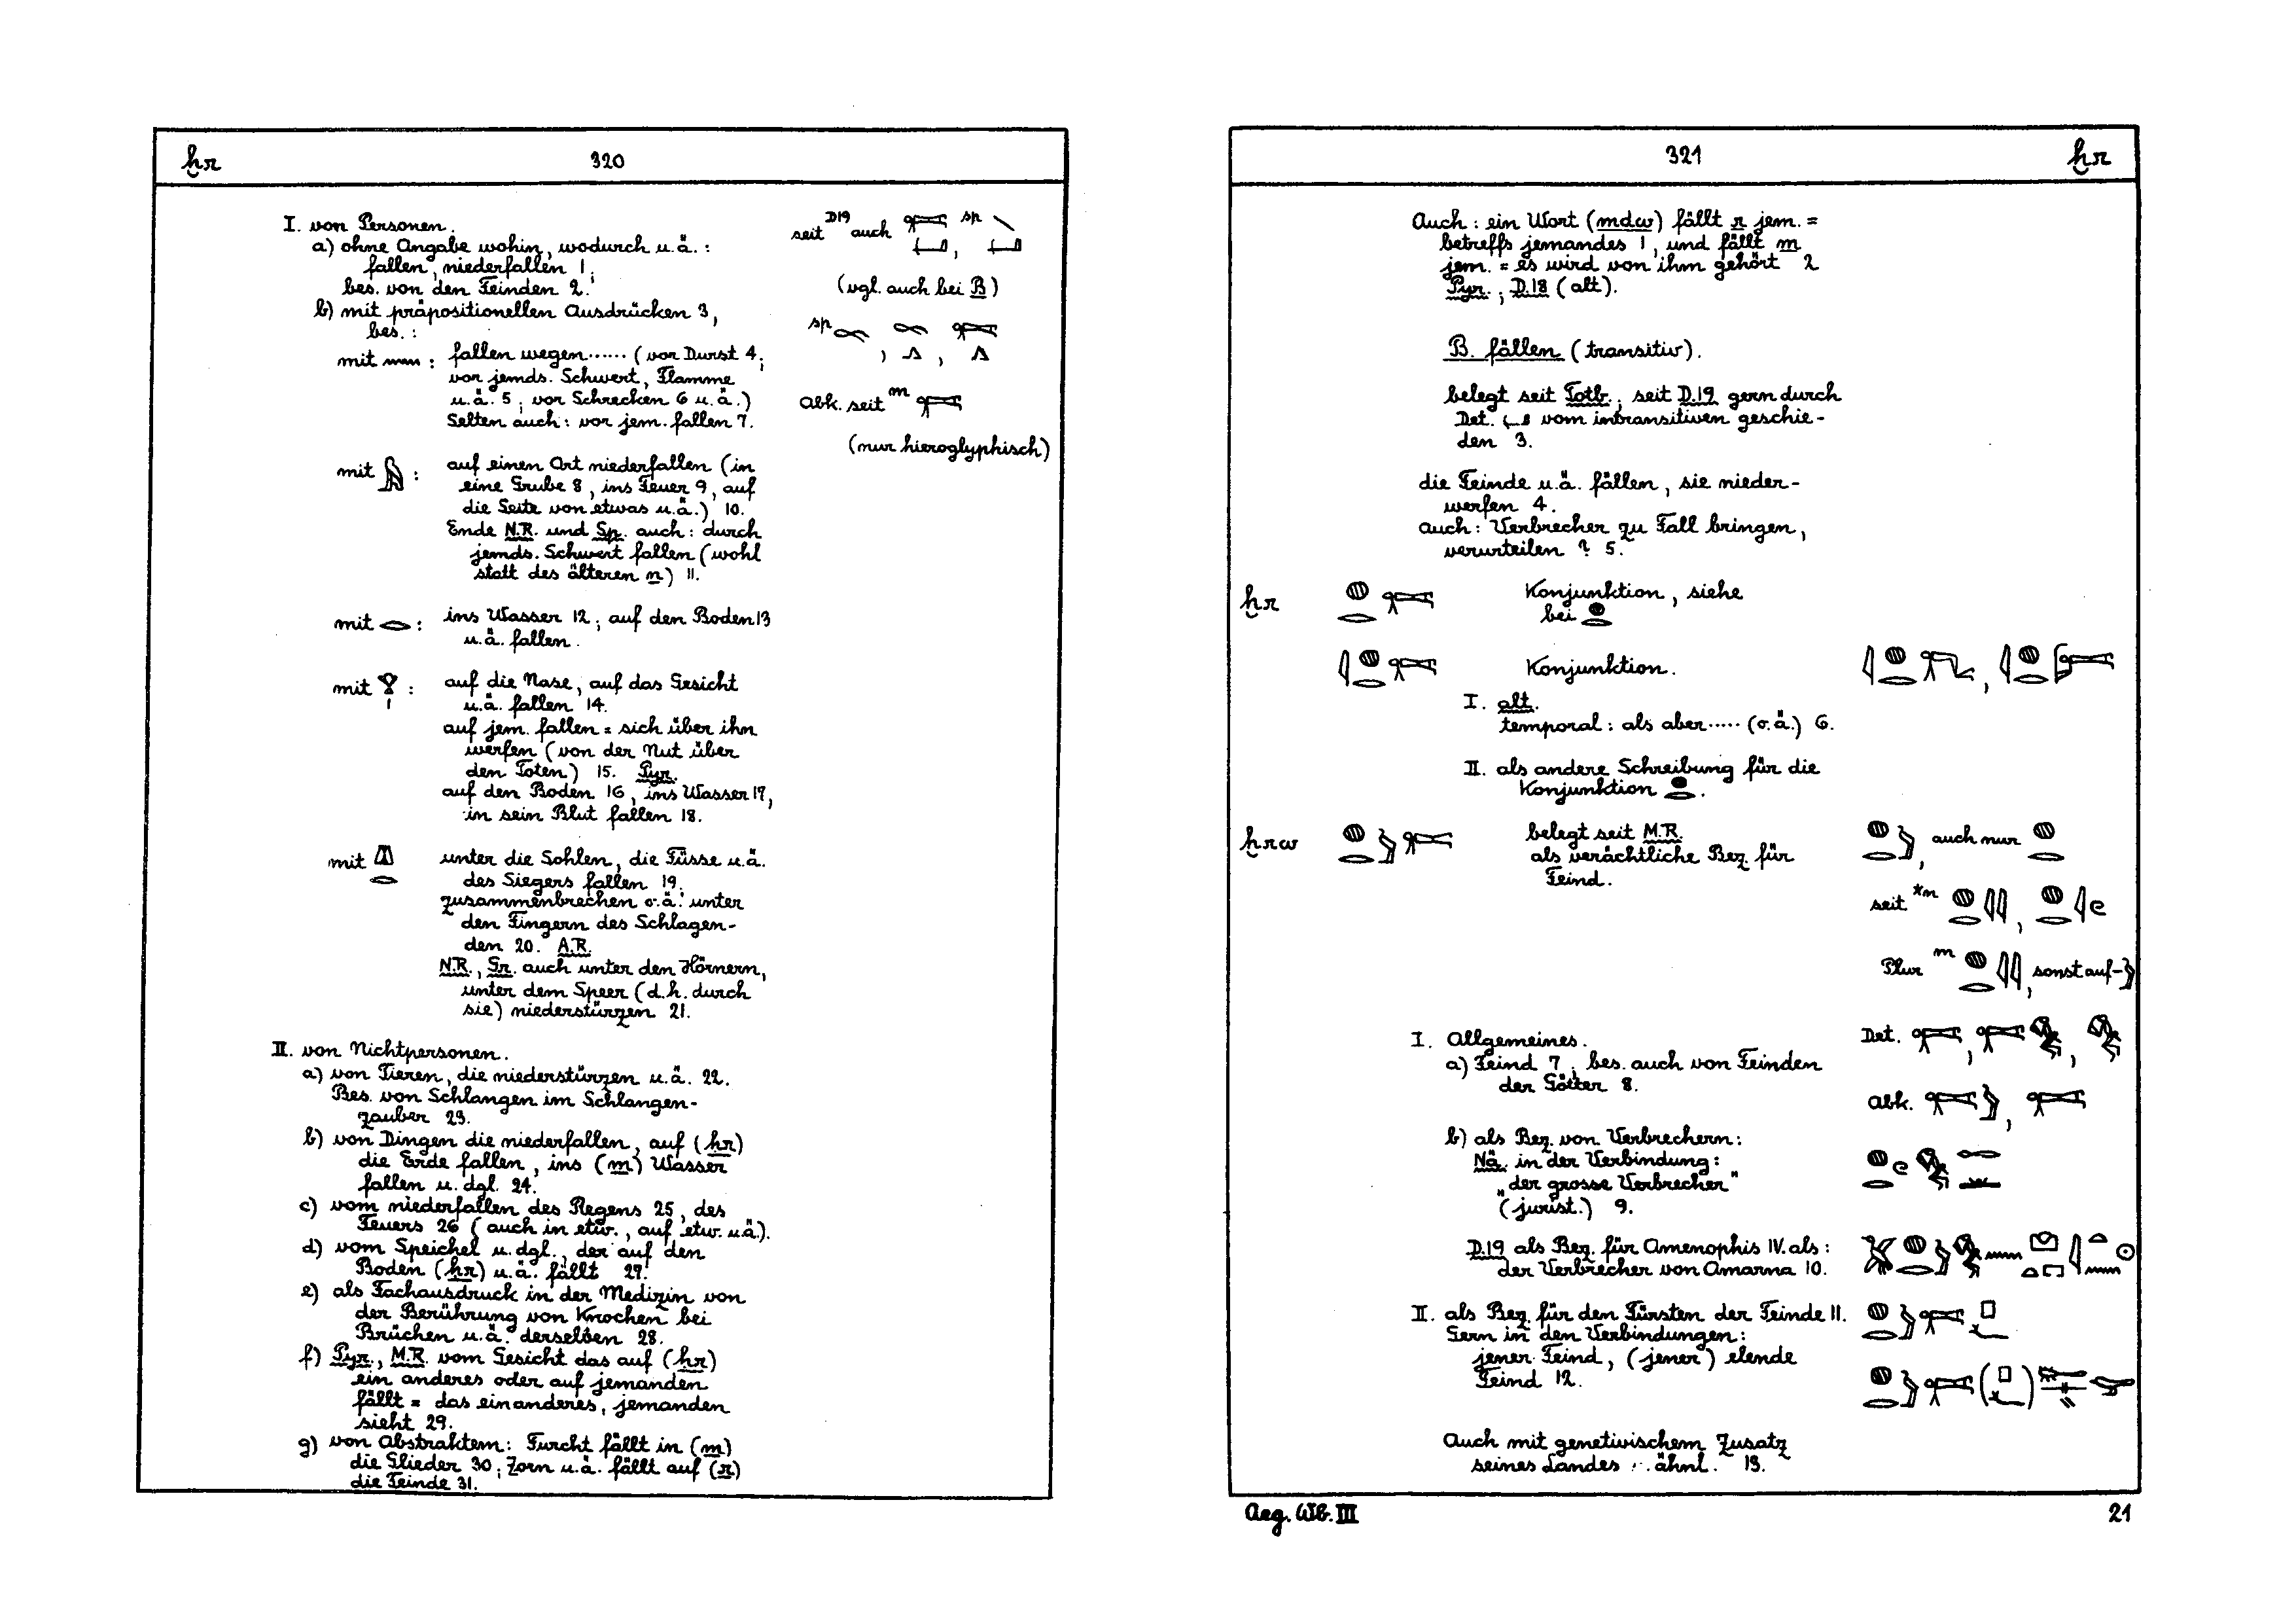 ḫr 320
I. von Personen.
a) ohne Angabe wohin, wodurch u.ä. :
fallen, niederfallen 1;
bes. von den Feinden 2.
b) mit präpositionellen Ausdrücken 3,
bes. :
mit 𓈖 : fallen wegen...... (vor Durst 4;
vor jemds. Schwert, Flamme
u.ä. 5; vor Schrecken 6 u.ä.)
Selten auch: vor jem. fallen 7.
mit 𓅓 : auf einen Ort niederfallen (in
eine Grube 8, ins Feuer 9, auf
die Seite von etwas u.ä.) 10.
Ende N.R. und Sp. auch: durch
jemds. Schwert fallen (wohl
statt des älteren n) 11.
mit 𓂋 : ins Wasser 12; auf den Boden 13
u.ä. fallen.
mit 𓁷𓏤 : auf die Nase, auf das Gesicht
u.ä. fallen 14.
auf jem. fallen = sich über ihn
werfen (von der Nut über
den Toten) 15. Pyr.
auf den Boden 16, ins Wasser 17,
in sein Blut fallen 18.
mit 𓌨𓂋 unter die Sohlen, die Füsse u.ä.
des Siegers fallen 19.
zusammenbrechen o.ä. unter
den Fingern des Schlagen-
den 20. A.R.
N.R., Gr. auch unter den Hörnern,
unter dem Speer (d.h. durch
sie) niederstürzen 21.
II. von Nichtpersonen.
a) von Tieren, die niederstürzen u.ä. 22.
Bes. von Schlangen im Schlangen-
zauber 23.
b) von Dingen die niederfallen, auf (ḥr)
die Erde fallen, ins (m) Wasser
fallen u. dgl. 24.
c) vom niederfallen des Regens 25, des
Feuers 26 (auch in etw., auf etw. u.ä.).
d) vom Speichel u. dgl., der auf den
Boden (ḥr) u.ä. fällt 27.
e) als Fachausdruck in der Medizin von
der Berührung von Knochen bei
Brüchen u.ä. derselben 28.
f) Pyr., M.R. vom Gesicht das auf (ḥr)
ein anderes oder auf jemanden
fällt = das ein anderes, jemanden
sieht 29.
g) von Abstraktem: Furcht fällt in (m)
die Glieder 30; Zorn u.ä. fällt auf (r)
die Feinde 31.
seit D19 auch sp
(vgl. auch bei B)
sp
Abk. seit m
(nur hieroglyphisch)
321 ḫr
Auch : ein Wort (mdw) fällt r jem. =
betreffs jemandes 1, und fällt m
jem. = es wird von ihm gehört 2
Pyr.; D.18 (alt).
B. fällen (transitiv).
belegt seit Totb.; seit D.19 gern durch
Det. 𓂡 vom intransitiven geschie-
den 3.
die Feinde u.ä. fällen, sie nieder-
werfen 4.
auch: Verbrecher zu Fall bringen,
verurteilen ? 5.
ḫr 𓐍𓂋 Konjunktion, siehe
bei 𓐍𓂋
𓇋𓐍𓂋 Konjunktion.
I. alt.
temporal: als aber..... (o.ä.) 6.
II. als andere Schreibung für die
Konjunktion 𓐍𓂋.
ḫrw 𓐍𓂋𓅱 belegt seit M.R. 𓐍𓂋𓅱, auch nur 𓐍𓂋
als verächtliche Bez. für
Feind.
seit *n 𓐍𓂋𓇌, 𓐍𓂋𓇋𓏲
Plur m 𓐍𓂋𓇌, sonst auf -𓅱
I. Allgemeines. Det.
a) Feind 7; bes. auch von Feinden
der Götter 8.
Abk.
b) als Bez. von Verbrechern:
Nä. in der Verbindung:
"der grosse Verbrecher"
(jurist.) 9.
D.19 als Bez. für Amenophis IV. als:
der Verbrecher von Amarna 10.
II. als Bez. für den Fürsten der Feinde 11.
Gern in den Verbindungen:
jener Feind, (jener) elende
Feind 12.
Auch mit genetivischem Zusatz
seines Landes ähnl. 13.
Aeg. Wb. III 21